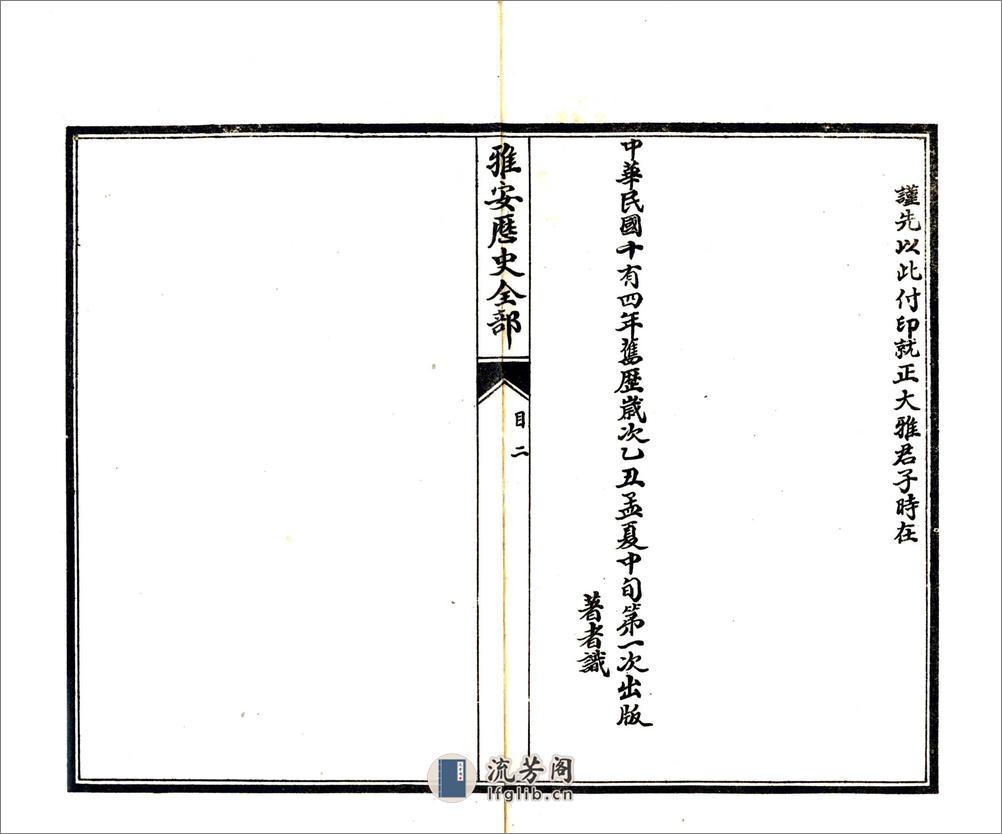 謹先以此付印就正大雅君子時在
中華民國十有四年舊歷歲次乙丑孟夏中旬第一次出版
著者識
雅安歷史全部
目二
流芳阁
lfglib.cn